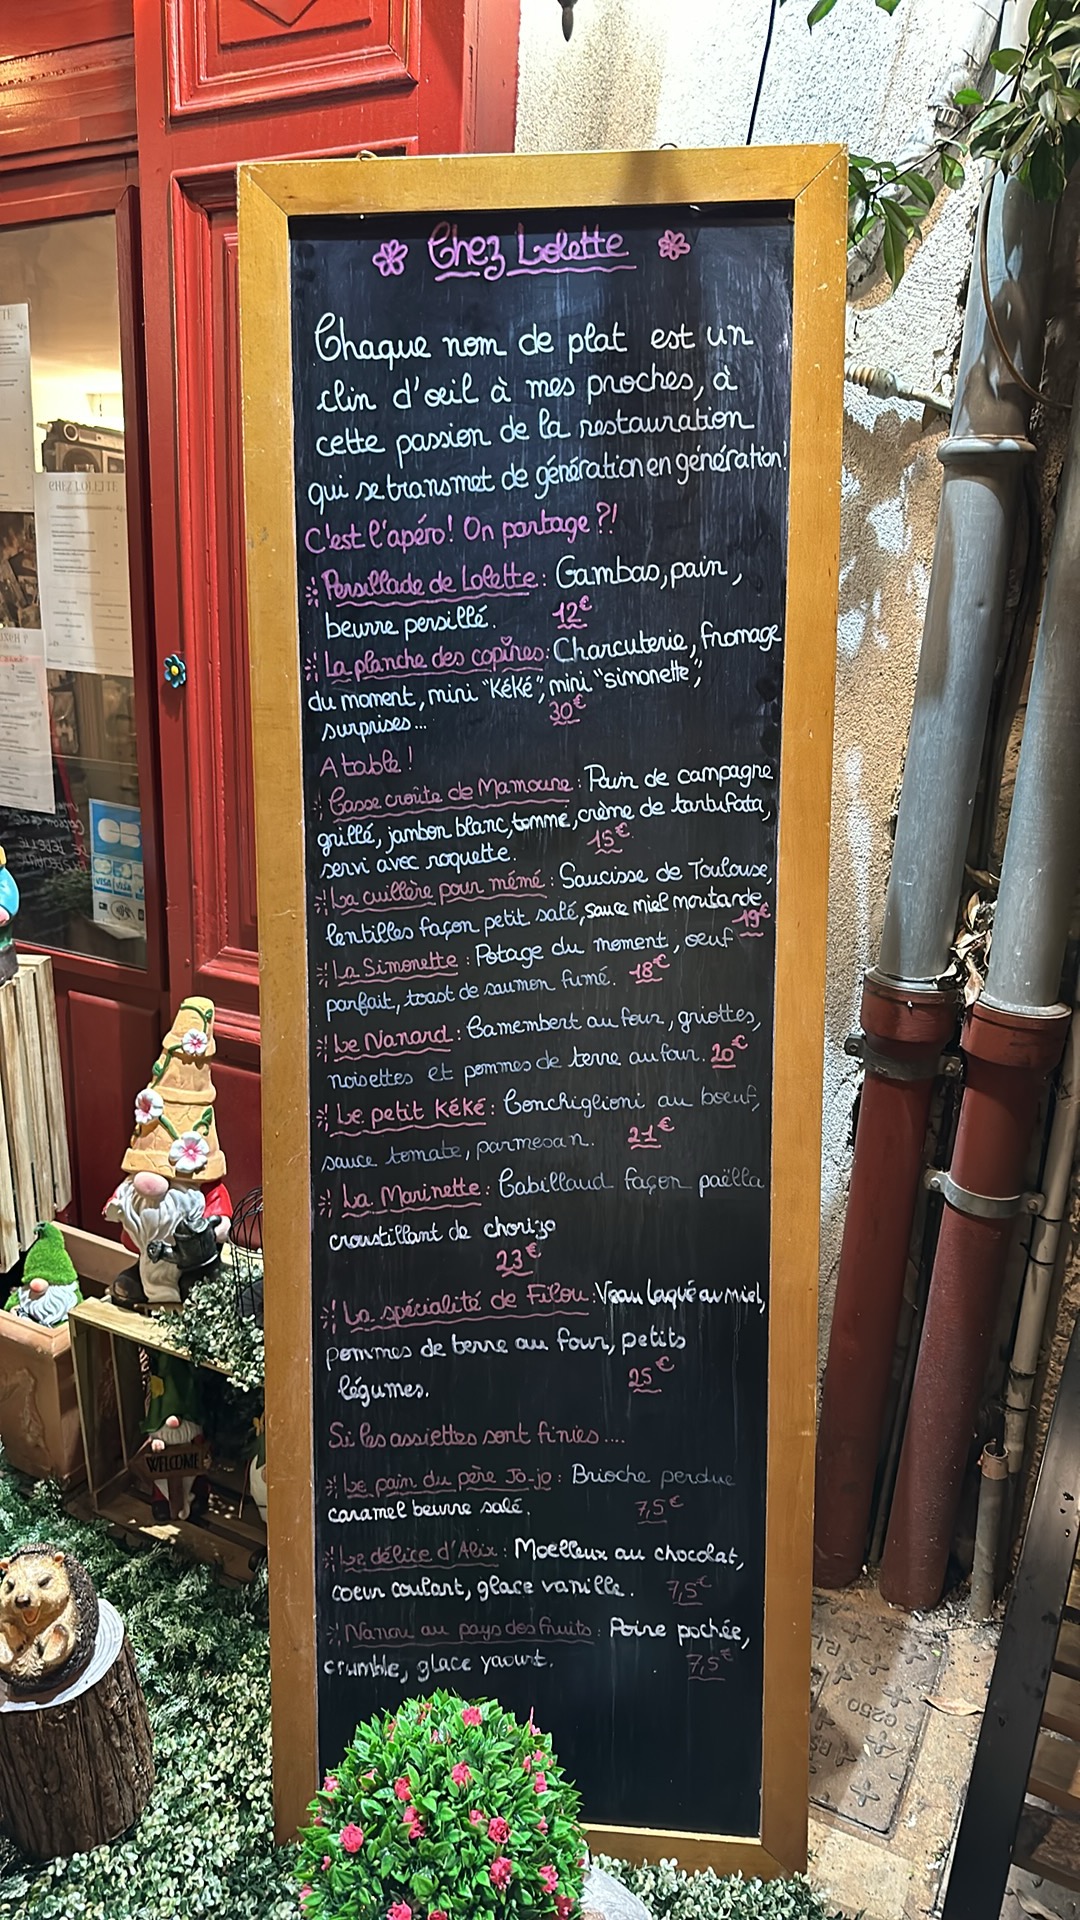 Chez Lolette
Chaque nom de plat est un
clin d'oeil à mes proches, à
cette passion de la restauration
qui se transmet de génération en génération!
C'est l'apéro! On partage ?!
Persillade de Lolette : Gambas, pain,
beurre persillé. 12€
La planche des copines : Charcuterie, fromage
du moment, mini "Kéké", mini "simonette",
surprises... 30€
A table !
Casse croûte de Mamoune : Pain de campagne
grillé, jambon blanc, tomme, crème de tartufata,
servi avec roquette. 15€
La cuillère pour mémé : Saucisse de Toulouse,
lentilles façon petit salé, sauce miel moutarde 19€
La Simonette : Potage du moment, oeuf
parfait, toast de saumon fumé. 18€
Le Nanard : Camembert au four, griottes,
noisettes et pommes de terre au four. 20€
Le petit Kéké : Conchiglioni au boeuf,
sauce tomate, parmesan. 21€
La Marinette : Cabillaud façon paëlla
croustillant de chorizo
23€
La spécialité de Filou : Veau laqué au miel,
pommes de terre au four, petits
légumes. 25€
Si les assiettes sont finies....
Le pain du père Jo-jo : Brioche perdue
caramel beurre salé. 7,5€
Le délice d'Alix : Moelleux au chocolat,
coeur coulant, glace vanille. 7,5€
Nanou au pays des fruits : Poire pochée,
crumble, glace yaourt. 7,5€
CHEZ LOLETTE
CB
VISA
WELCOME
C250